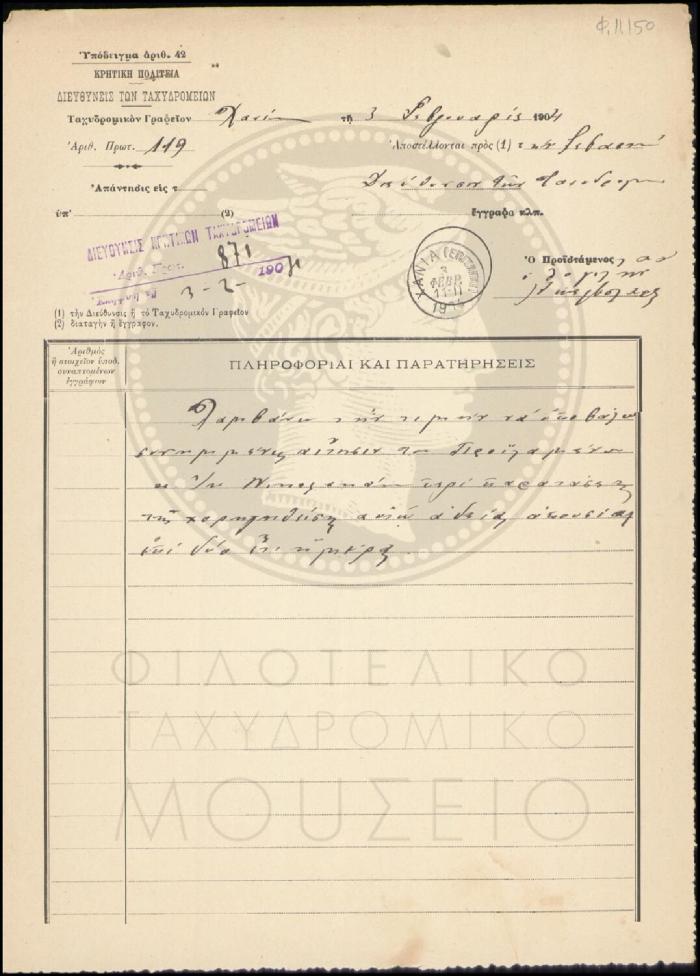 Φ.11.150
Ὑπόδειγμα ἀριθ. 42
ΚΡΗΤΙΚΗ ΠΟΛΙΤΕΙΑ
ΔΙΕΥΘΥΝΣΙΣ ΤΩΝ ΤΑΧΥΔΡΟΜΕΙΩΝ
Ταχυδρομικὸν Γραφεῖον Χανίων τῇ 3 Φεβρουαρίο 1904
Ἀριθ. Πρωτ. 119
Ἀποστέλλονται πρὸς (1) τὴν Σεβαστὴ
Διεύθυνσιν τῶν Ταχυδρομ
Ἀπάντησις εἰς τ
ὑπ' (2)
ἔγγραφα κλπ.
ΔΙΕΥΘΥΝΣΙΣ ΚΡΗΤΙΚΩΝ ΤΑΧΥΔΡΟΜΕΙΩΝ
Ἀριθ. Πρωτ. 871
3-2- 1904
ΧΑΝΙΑ
3
ΦΕΒΡ
11
1904
Ὁ Προϊστάμενος
(1) τὴν Διεύθυνσις ἢ τὸ Ταχυδρομικὸν Γραφεῖον
(2) διαταγὴν ἢ ἔγγραφον.
Ἀριθμὸς
ἢ στοιχεῖον ὑποδ.
συναπτομένων
ἐγγράφων
ΠΛΗΡΟΦΟΡΙΑΙ ΚΑΙ ΠΑΡΑΤΗΡΗΣΕΙΣ
Λαμβάνω τὴν τιμὴν νὰ ὑποβάλω
συνημμένως αἴτησιν τοῦ Προϊσταμένου
περὶ παρατάσεως
τῆς χορηγηθείσης αὐτῷ ἀδείας ἀπουσίας
ἐπὶ δύο ἔτι ἡμέρας.
ΦΙΛΟΤΕΛΙΚΟ
ΤΑΧΥΔΡΟΜΙΚΟ
ΜΟΥΣΕΙΟ